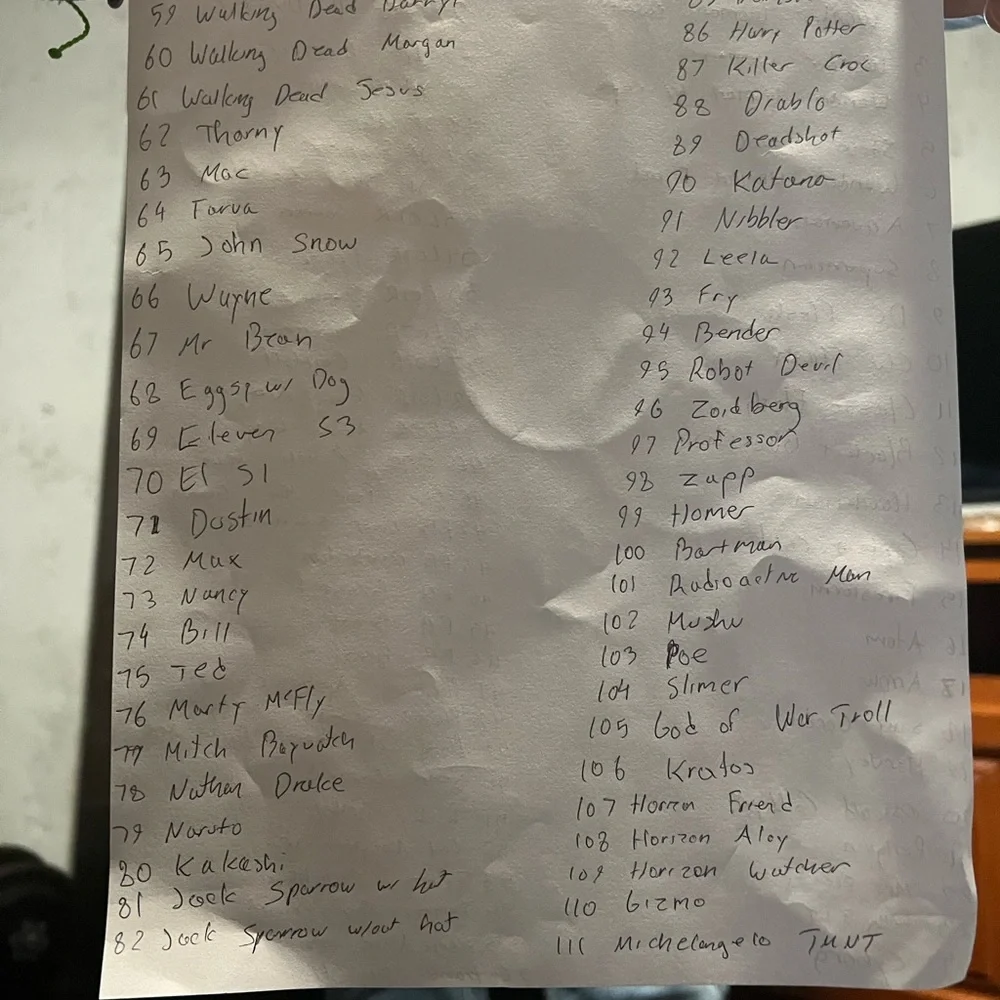 59 Walking Dead Darryl
60 Walking Dead Morgan
61 Walking Dead Jesus
62 Thorny
63 Mac
64 Farva
65 John Snow
66 Wayne
67 Mr Bean
68 Eggsy w/ Dog
69 Eleven S3
70 El S1
71 Dustin
72 Max
73 Nancy
74 Bill
75 Ted
76 Marty McFly
77 Mitch Baywatch
78 Nathan Drake
79 Naruto
80 Kakashi
81 Jack Sparrow w/ hat
82 Jack Sparrow w/out hat
86 Harry Potter
87 Killer Croc
88 Diablo
89 Deadshot
90 Katana
91 Nibbler
92 Leela
93 Fry
94 Bender
95 Robot Devil
96 Zoidberg
97 Professor
98 Zapp
99 Homer
100 Bartman
101 Radioactive Man
102 Mushu
103 Poe
104 Slimer
105 God of War Troll
106 Kratos
107 Friend
108 Horizon Aloy
109 Horizon Watcher
110 Gizmo
111 Michelangelo TMNT